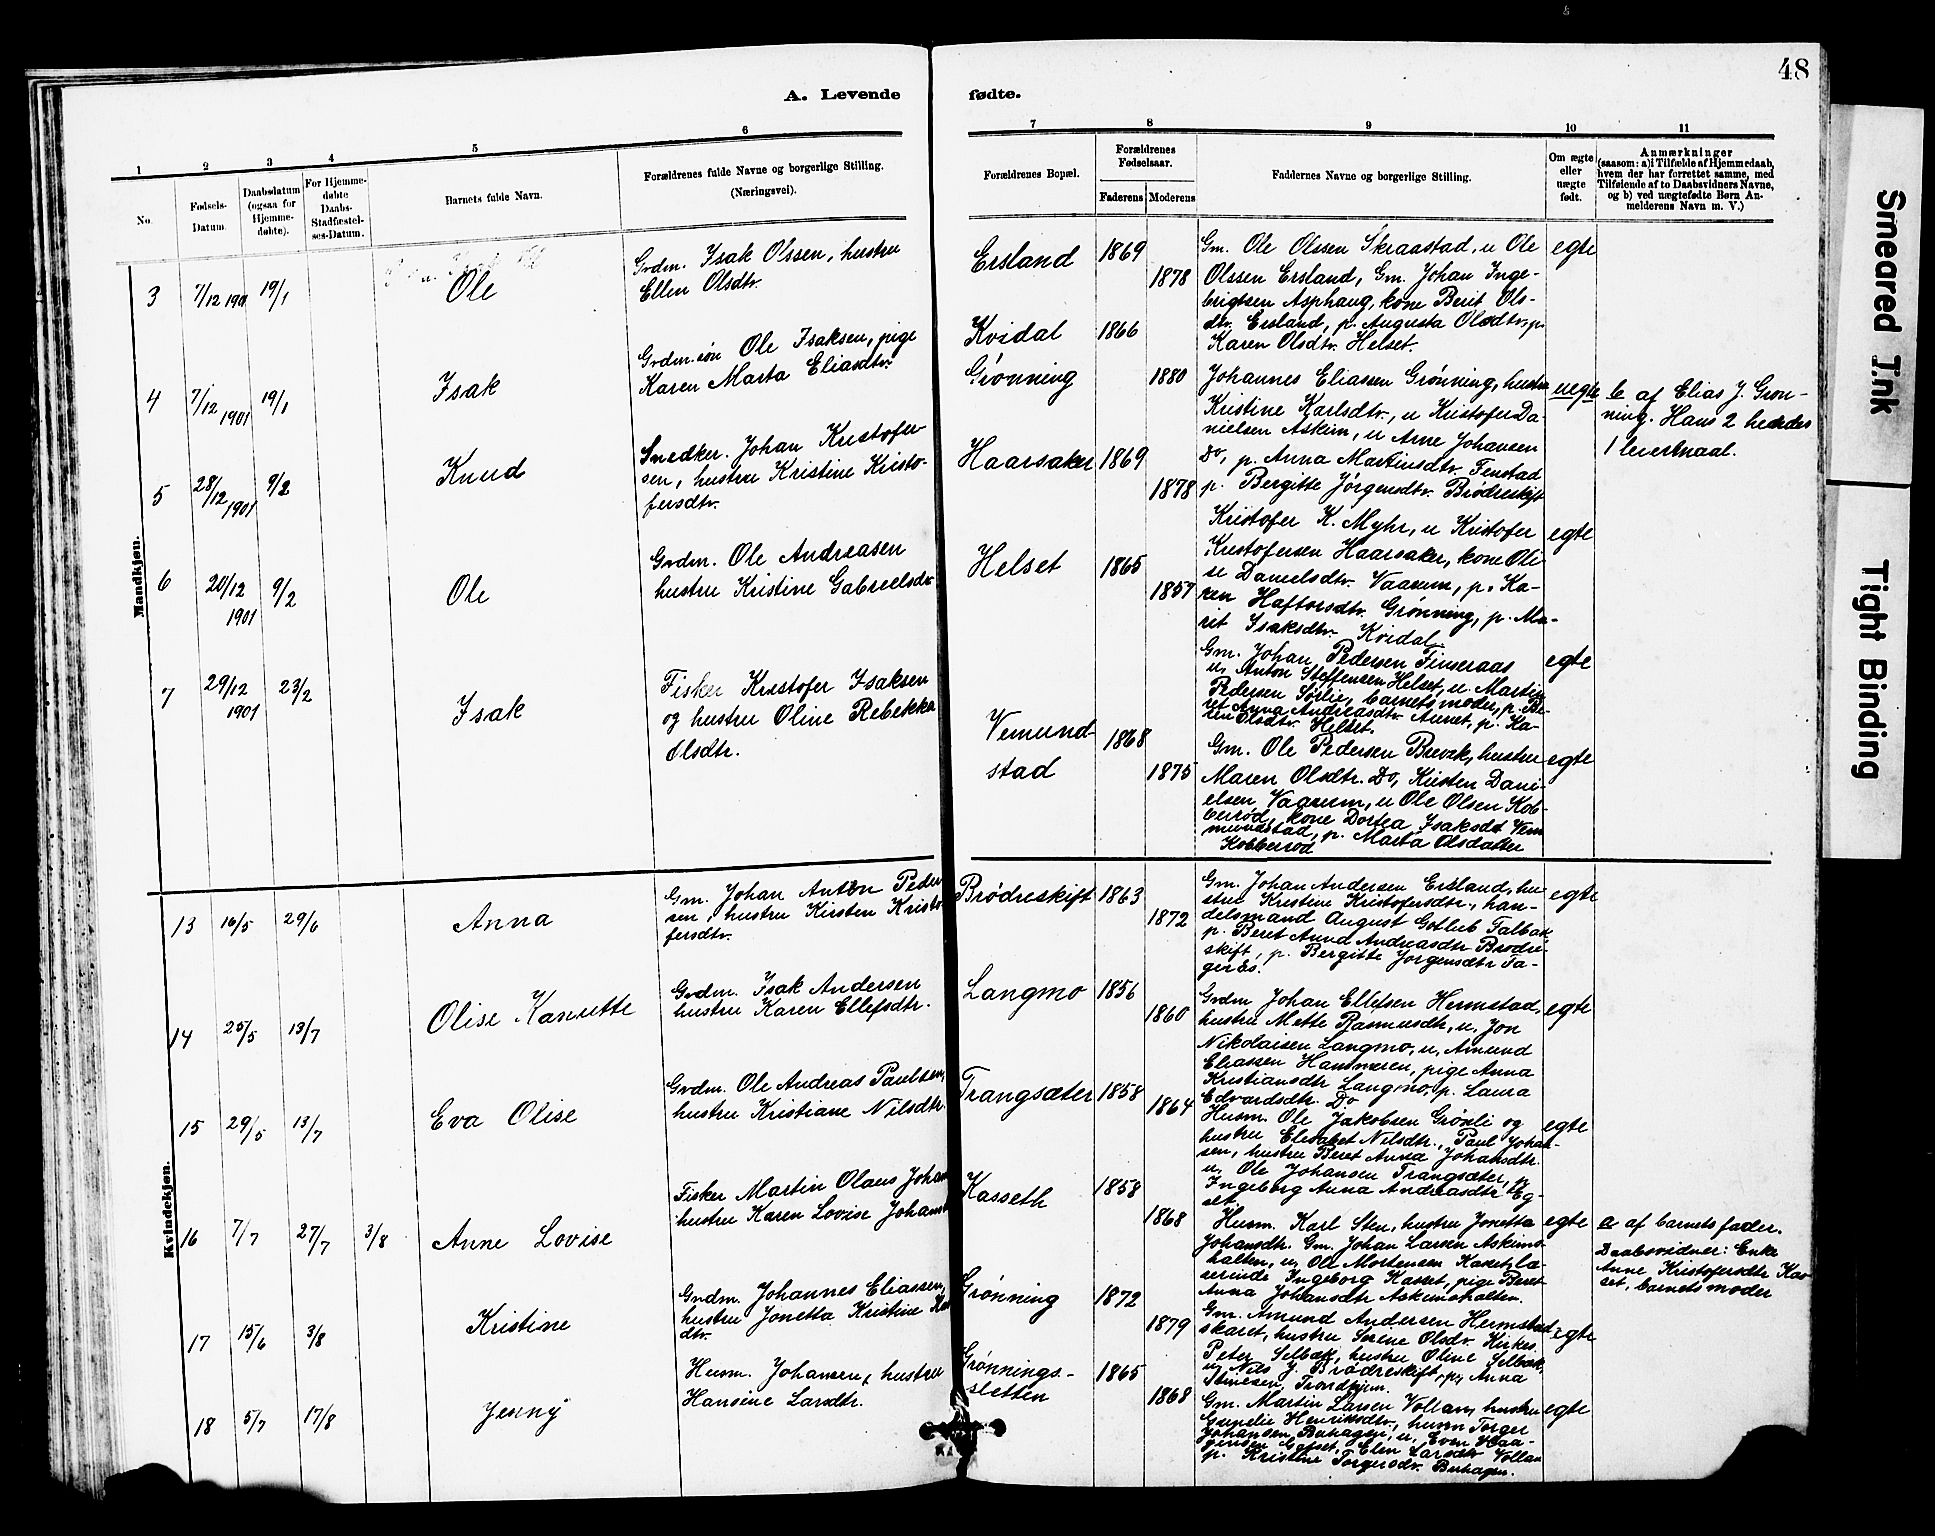 48
A. Levende fødte.
1
2
3
4
5
6
7
8
9
10
11
No.
Fødsels-
Datum.
Daabsdatum
(ogsaa for
Hjemme-
døbte).
For Hjemme-
døbte
Daabs-
Stadfæstel-
ses-Datum.
Barnets fulde Navn.
Forældrenes fulde Navne og borgerlige Stilling.
(Næringsvei).
Forældrenes Bopæl.
Forældrenes
Fødselsaar.
Faderens
Moderens
Faddernes Navne og borgerlige Stilling.
Om ægte
eller
uægte
født.
Anmærkninger
(saasom: a) i Tilfælde af Hjemmedaab,
hvem der har forrettet samme, med
Tilføiende af to Daabsvidners Navne,
og b) ved uægtefødte Børn An-
melderens Navn m. V.)
Mandkjøn.
3 7/12 1901 19/1 Ole
Grdm. Isak Olssen, hustru
Ellen Olsdtr.
Ersland 1869
1878
Gm. Ole Olssen Skraastad, u Ole
Olssen Ersland, Gm. Johan Inge-
brigtsen Asphaug, kone Berit Ols-
dtr. Ersland, p. Augusta Olsdtr, p.
Karen Olsdtr. Helset.
egte
4 7/12 1901 19/1 Isak
Grdm.søn Ole Isaksen, pige
Karen Marta Eliasdtr.
Kvidal 1866
Grønning 1880
Johannes Eliassen Grønning, hustru
Kristine Karlsdtr., u Kristofer Da-
nielsen Askim, u Arne Johansen
Do, p. Anna Martinsdtr. Fenstad
p. Bergitte Jørgensdtr. Brødreskift
uegte
b af Elias J. Grøn-
ning. Hans 2 hendes
1 leiermaal.
5 28/12 1901 9/2 Knud
Snedker. Johan Kristofer-
sen, hustru Kristine Kristo-
fersdtr.
Haarsaker 1869
1878
Kristofer K. Myhr, u Kristofer
Kristofersen Haarsaker, kone Oli-
se Danielsdtr. Vaarum, p. Ka-
ren Haftorsdtr. Grønning, p. Ma-
rit Isaksdtr. Kvidal
egte
6 20/12 1901 9/2 Ole
Grdm. Ole Andreasen
hustru Kristine Gabrielsdtr
Helset 1865
1857
Gm. Johan Pedersen Finseraas
u, Anton Steffensen Helset, u. Martin
Pedersen Sørlie, barnets moder, p. Be-
ret Anna Andreasdtr Aunet, p. Ka-
ren Olsdtr. Helset.
egte
7 29/12 1901 23/2 Isak
Fisker Kristofer Isaksen
og hustru Oline Rebekka
Olsdtr.
Vemund-
stad 1868
1875
Gm. Ole Pedersen Brevik, hustru
Maren Olsdtr. Do, Kristen Dani-
elsen Vaarum, u Ole Olsen Kob-
berrød, kone Dortea Isaksdt Vem
mundstad, p. Marta Olsdatter
Kobberrød
egte
Kvindekjøn.
13 16/5 29/6 Anna
Gm. Johan Anton Peder
sen, hustru Kirsten Kristo
fersdtr.
Brødreskift 1863
1872
Gm. Johan Andersen Ersland, hu-
stru Kristine Kristofersdtr., han-
delsmand August Gotlieb Falbak
p. Beret Anna Andreasdtr Brødre-
skift, p. Bergitte Jørgensdtr Fa-
geraas.
egte
14 25/5 13/7 Olise Kanutte
Grdm. Isak Andersen
hustru Karen Ellefsdtr.
Langmo 1856
1860
Grdm Johan Ellefsen Hermstad,
hustru Mette Rasmusdtr, u, Jon
Nikolaisen Langmo, u, Amund
Eliassen Hansmoen, pige Anna
Kristiansdtr Langmo, p. Laura
Edvardsdtr. Do
egte
15 29/5 13/7 Eva Olise
Grdm. Ole Andreas Paulsen,
hustru Kristiane Nilsdtr.
Trangsæter 1858
1864
Husm. Ole Jakobsen Grønli og
hustru Elisabet Nilsdtr., Paul Johan-
sen, hustru Beret Anna Johansdtr.
u, Ole Johansen Trangsæter, p,
Ingeborg Anna Andreasdtr Eg-
set.
egte
16 7/7 27/7 3/8 Anne Lovise
Fisker Martin Olaus Johan
hustru Karen Lovise Johansd
Kasseth 1858
1868
Husm. Karl Sten, hustru Jonetta
Johansdtr. Gm. Johan Larsen Askims-
halten, u, Ole Mortensen Kasset, læ-
rerinde Ingeborg Kasset, pige Beret
Anna Johansdtr Askimshalten.
egte
a af barnets fader.
Daabsvidner: Enke
Anne Kristofersdtr Kas
set, barnets moder
17 15/6 3/8 Kristine
Grdm. Johannes Eliassen,
hustru Jonetta Kristine Karls
dtr.
Grønning 1872
1879
Gm. Amund Andersen Hermstad-
skaret, hustru Serine Olsdr. Kirkes.
Peter Selbæk, hustru Oline Selbæk,
u, Nils J. Brødreskift, p, Anna
Stinesen, Trondhjem.
egte
18 5/7 17/8 Jenny
Husm. Johansen, hustru
Hansine Larsdtr.
Grønnings-
sletten 1865
1868
Gm. Martin Larsen Vollan, hustru
Gunelie Henriksdtr., husm Torger
Johansen Berhagen, u, Even Haa-
gensen Gafset, Elen Larsdtr Vollan
p. Kristine Torgersdr. Berhagen.
egte
Smeared Ink
Tight Binding